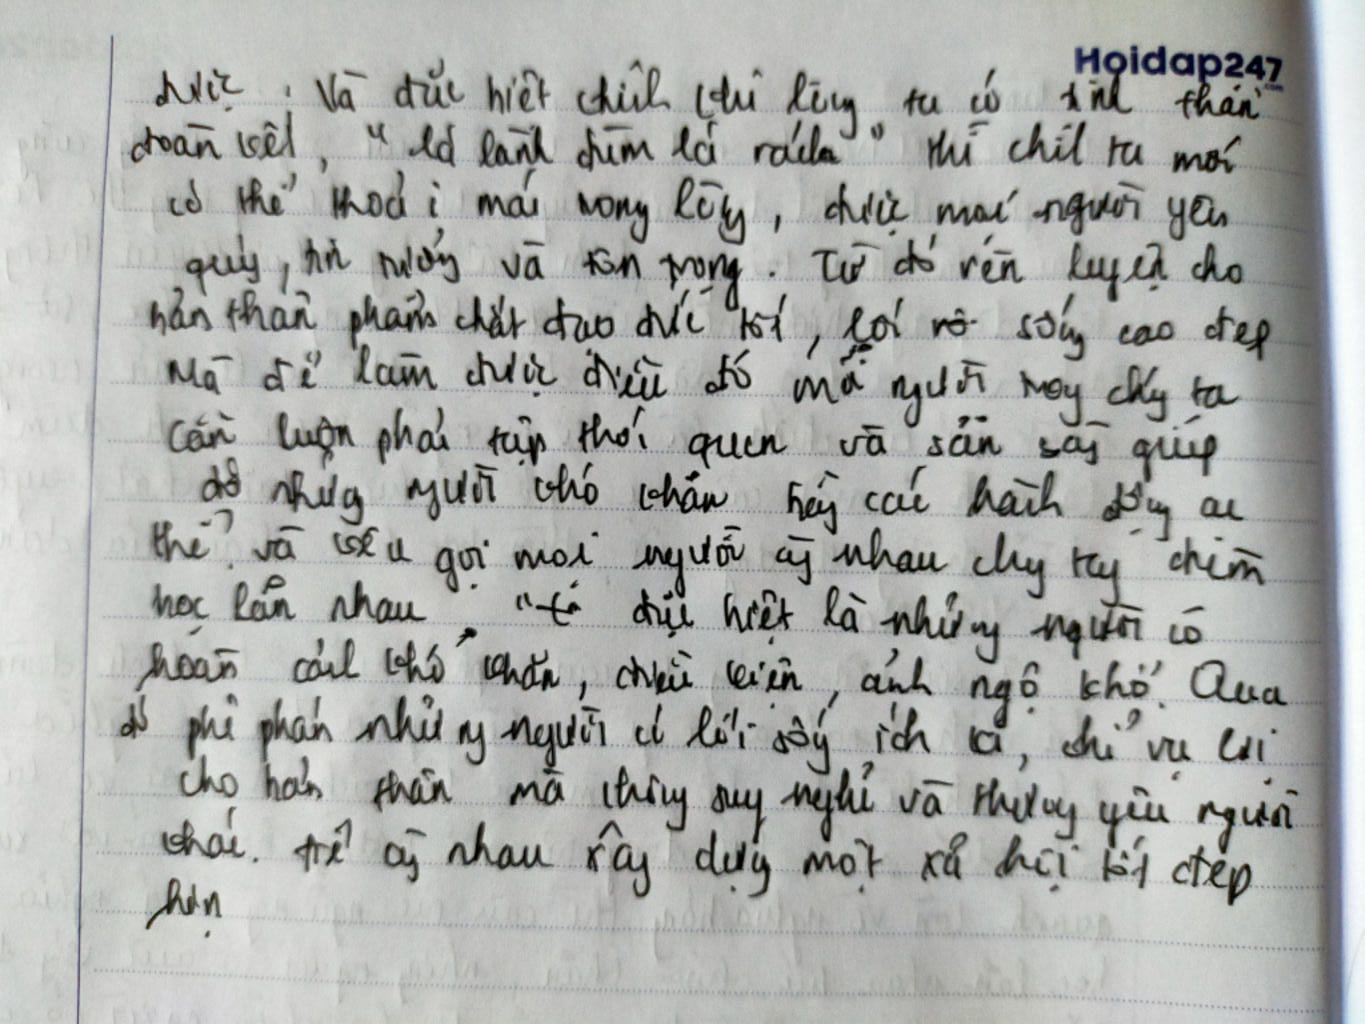 Hoidap247.com
được. Và đặc biệt chính khi lòng ta có tinh thần
đoàn kết, "lá lành đùm lá rách" thì ta mới
có thể thoải mái trong lòng, được mọi người yêu
quý, tin tưởng và tôn trọng. Từ đó rèn luyện cho
bản thân phẩm chất đạo đức tốt, lối sống cao đẹp
Mà để làm được điều đó mỗi người trong chúng ta
cần luôn phải tập thói quen và sẵn sàng giúp
đỡ những người khó khăn bằng các hành động cụ
thể và kêu gọi mọi người cùng nhau chung tay đùm
bọc lẫn nhau đặc biệt là những người có
hoàn cảnh khó khăn, điều kiện, cảnh ngộ khổ. Qua
đó phê phán những người có lối sống ích kỉ, chỉ vụ lợi
cho bản thân mà không suy nghĩ và thương yêu người
khác. Để cùng nhau xây dựng một xã hội tốt đẹp
hơn